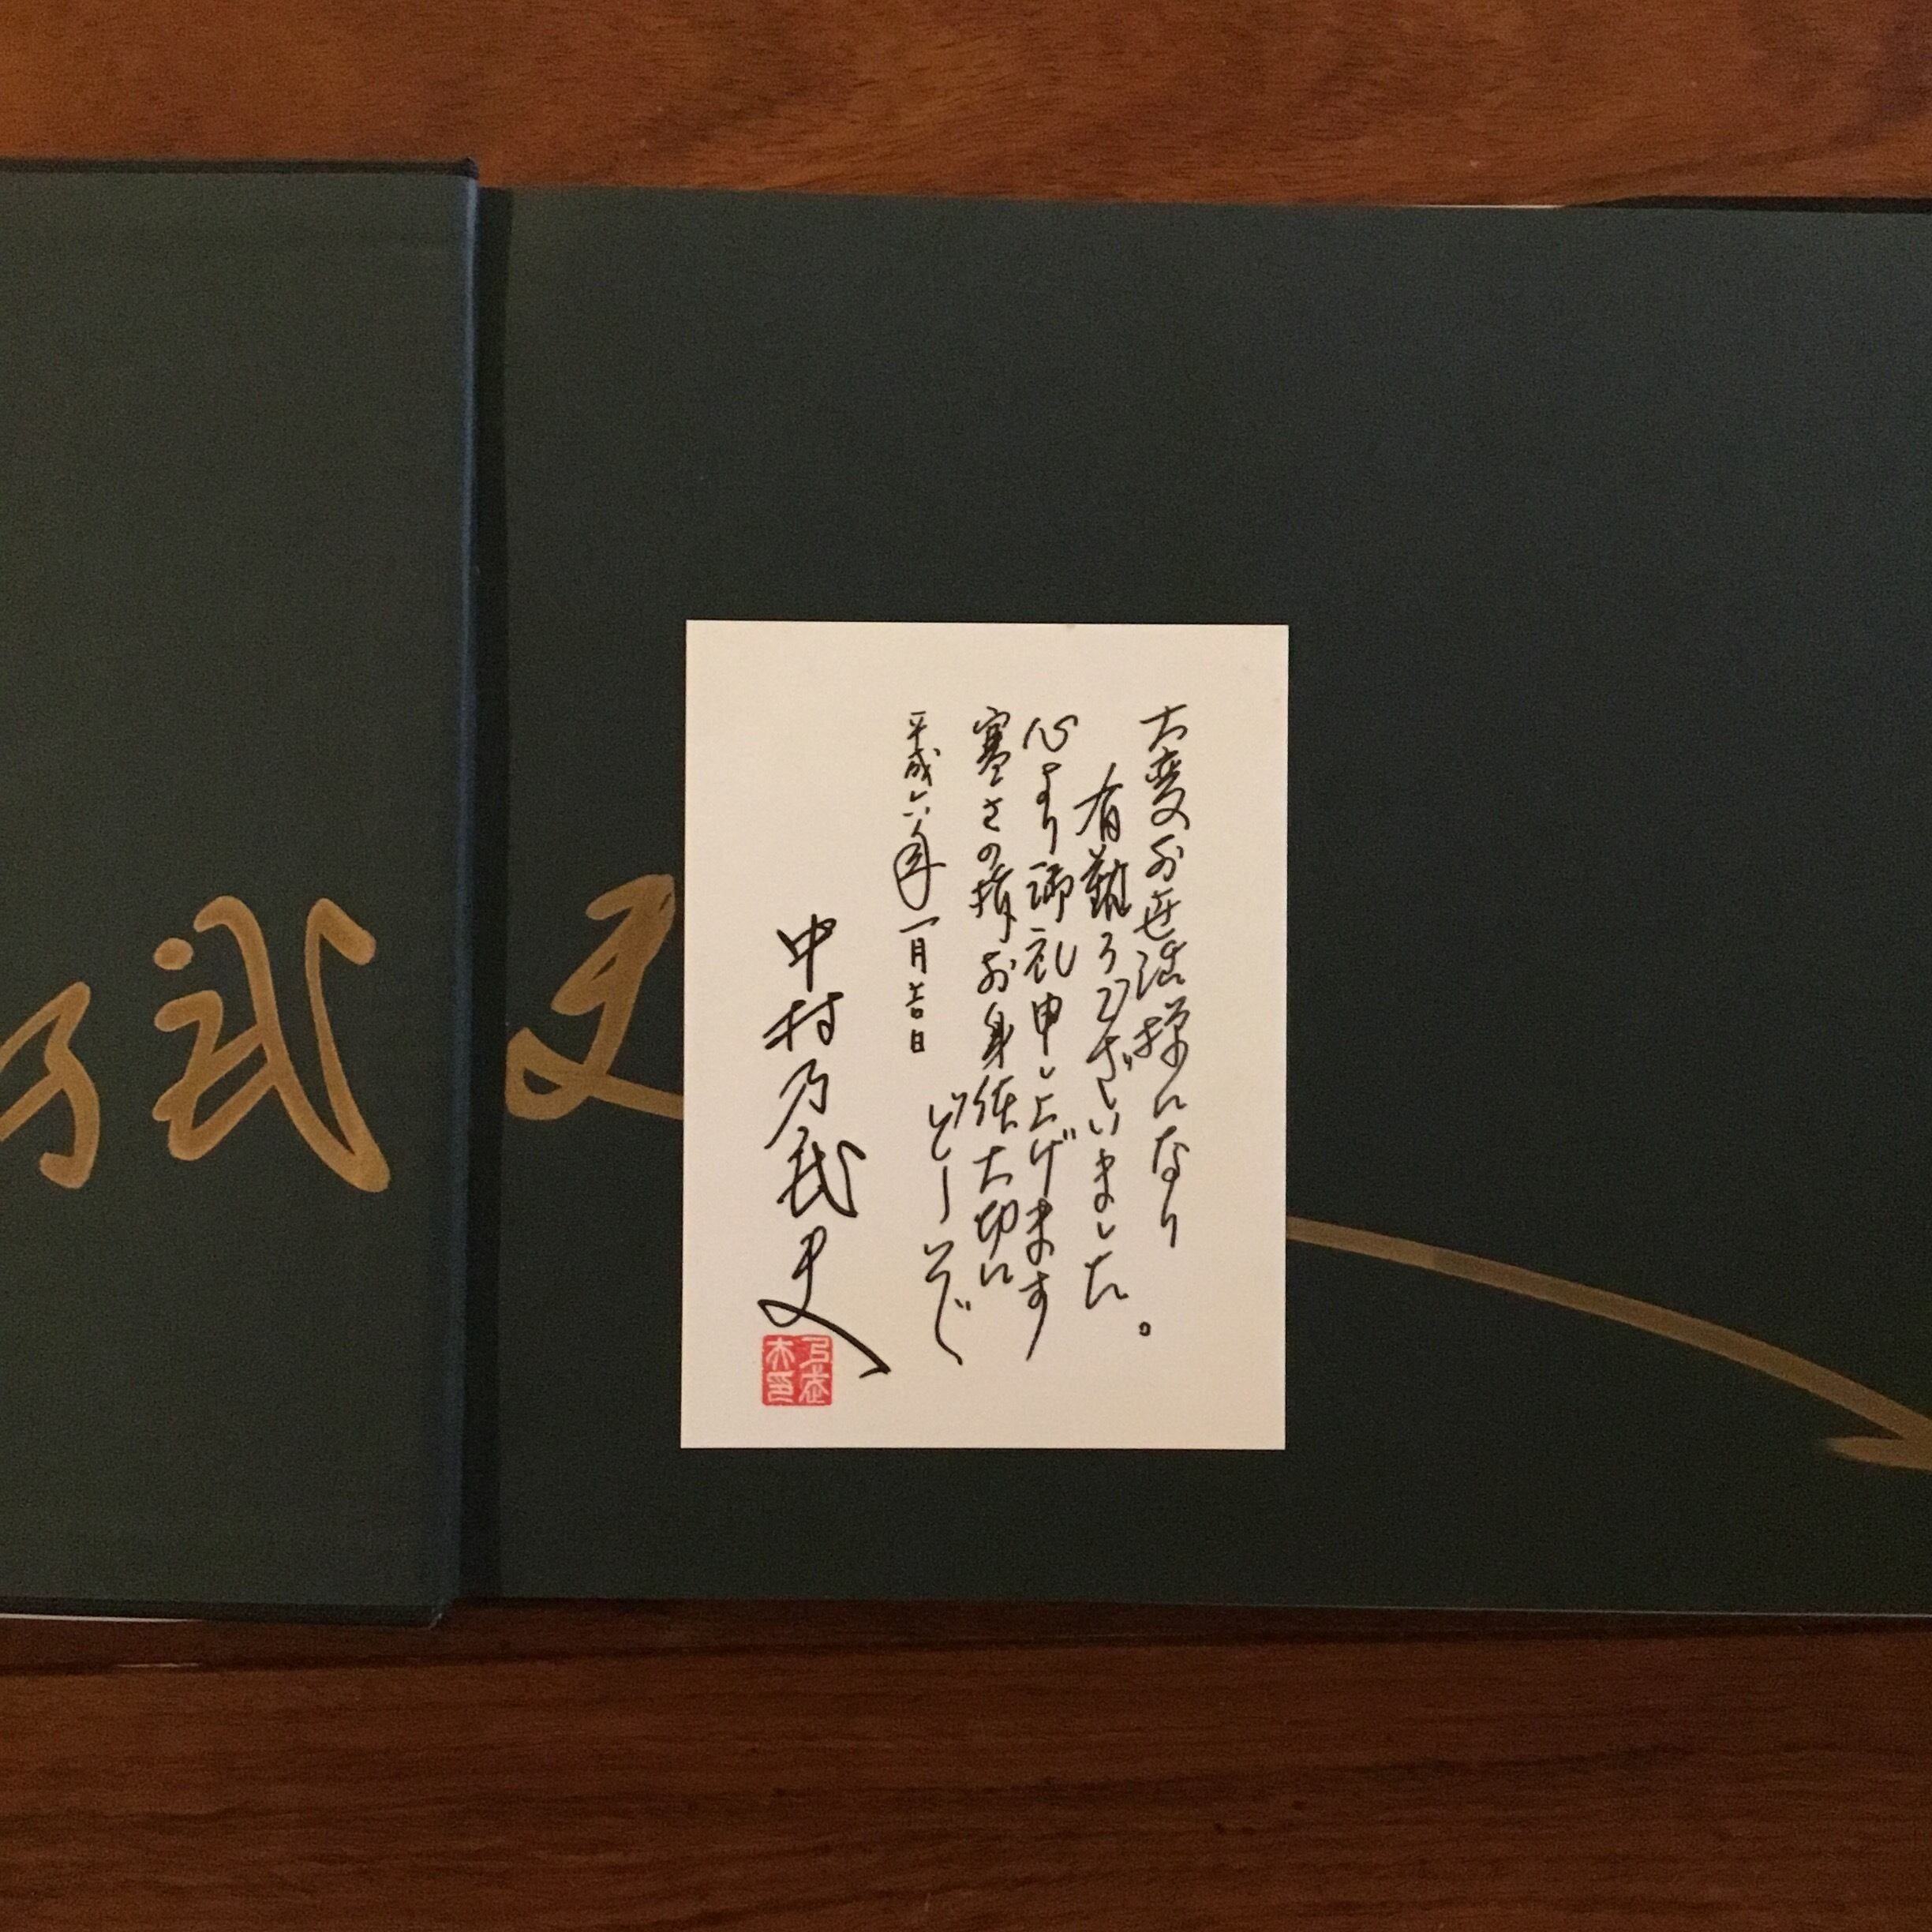 大変お世話様になり
有難うございました。
心より御礼申し上げます
寒さの折お身体大切に
平成六年一月吉日
中村乃武夫
乃武夫